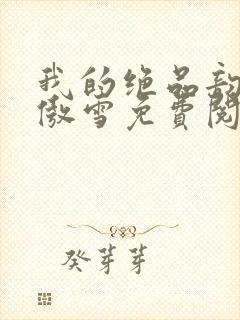 我的绝品
傲雪免费阅
癸芽芽